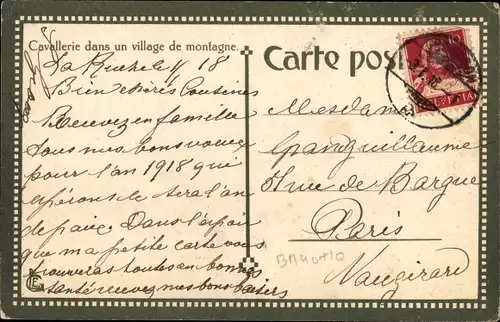 Cavallerie dans un village de montagne.
Carte post
10
HELVETIA
La Ruche le 1/18
Bien chères Cousines
Recevez en famille
tous mes bons voeux
pour l'an 1918 que
espérons le sera l'an
de paix. Dans l'espoir
que ma petite carte vous
trouveras toutes en bonnes
santé recevez mes bons baisers
Mesdames
Grandguillaume
rue de Bargue
Paris
Vaugirard